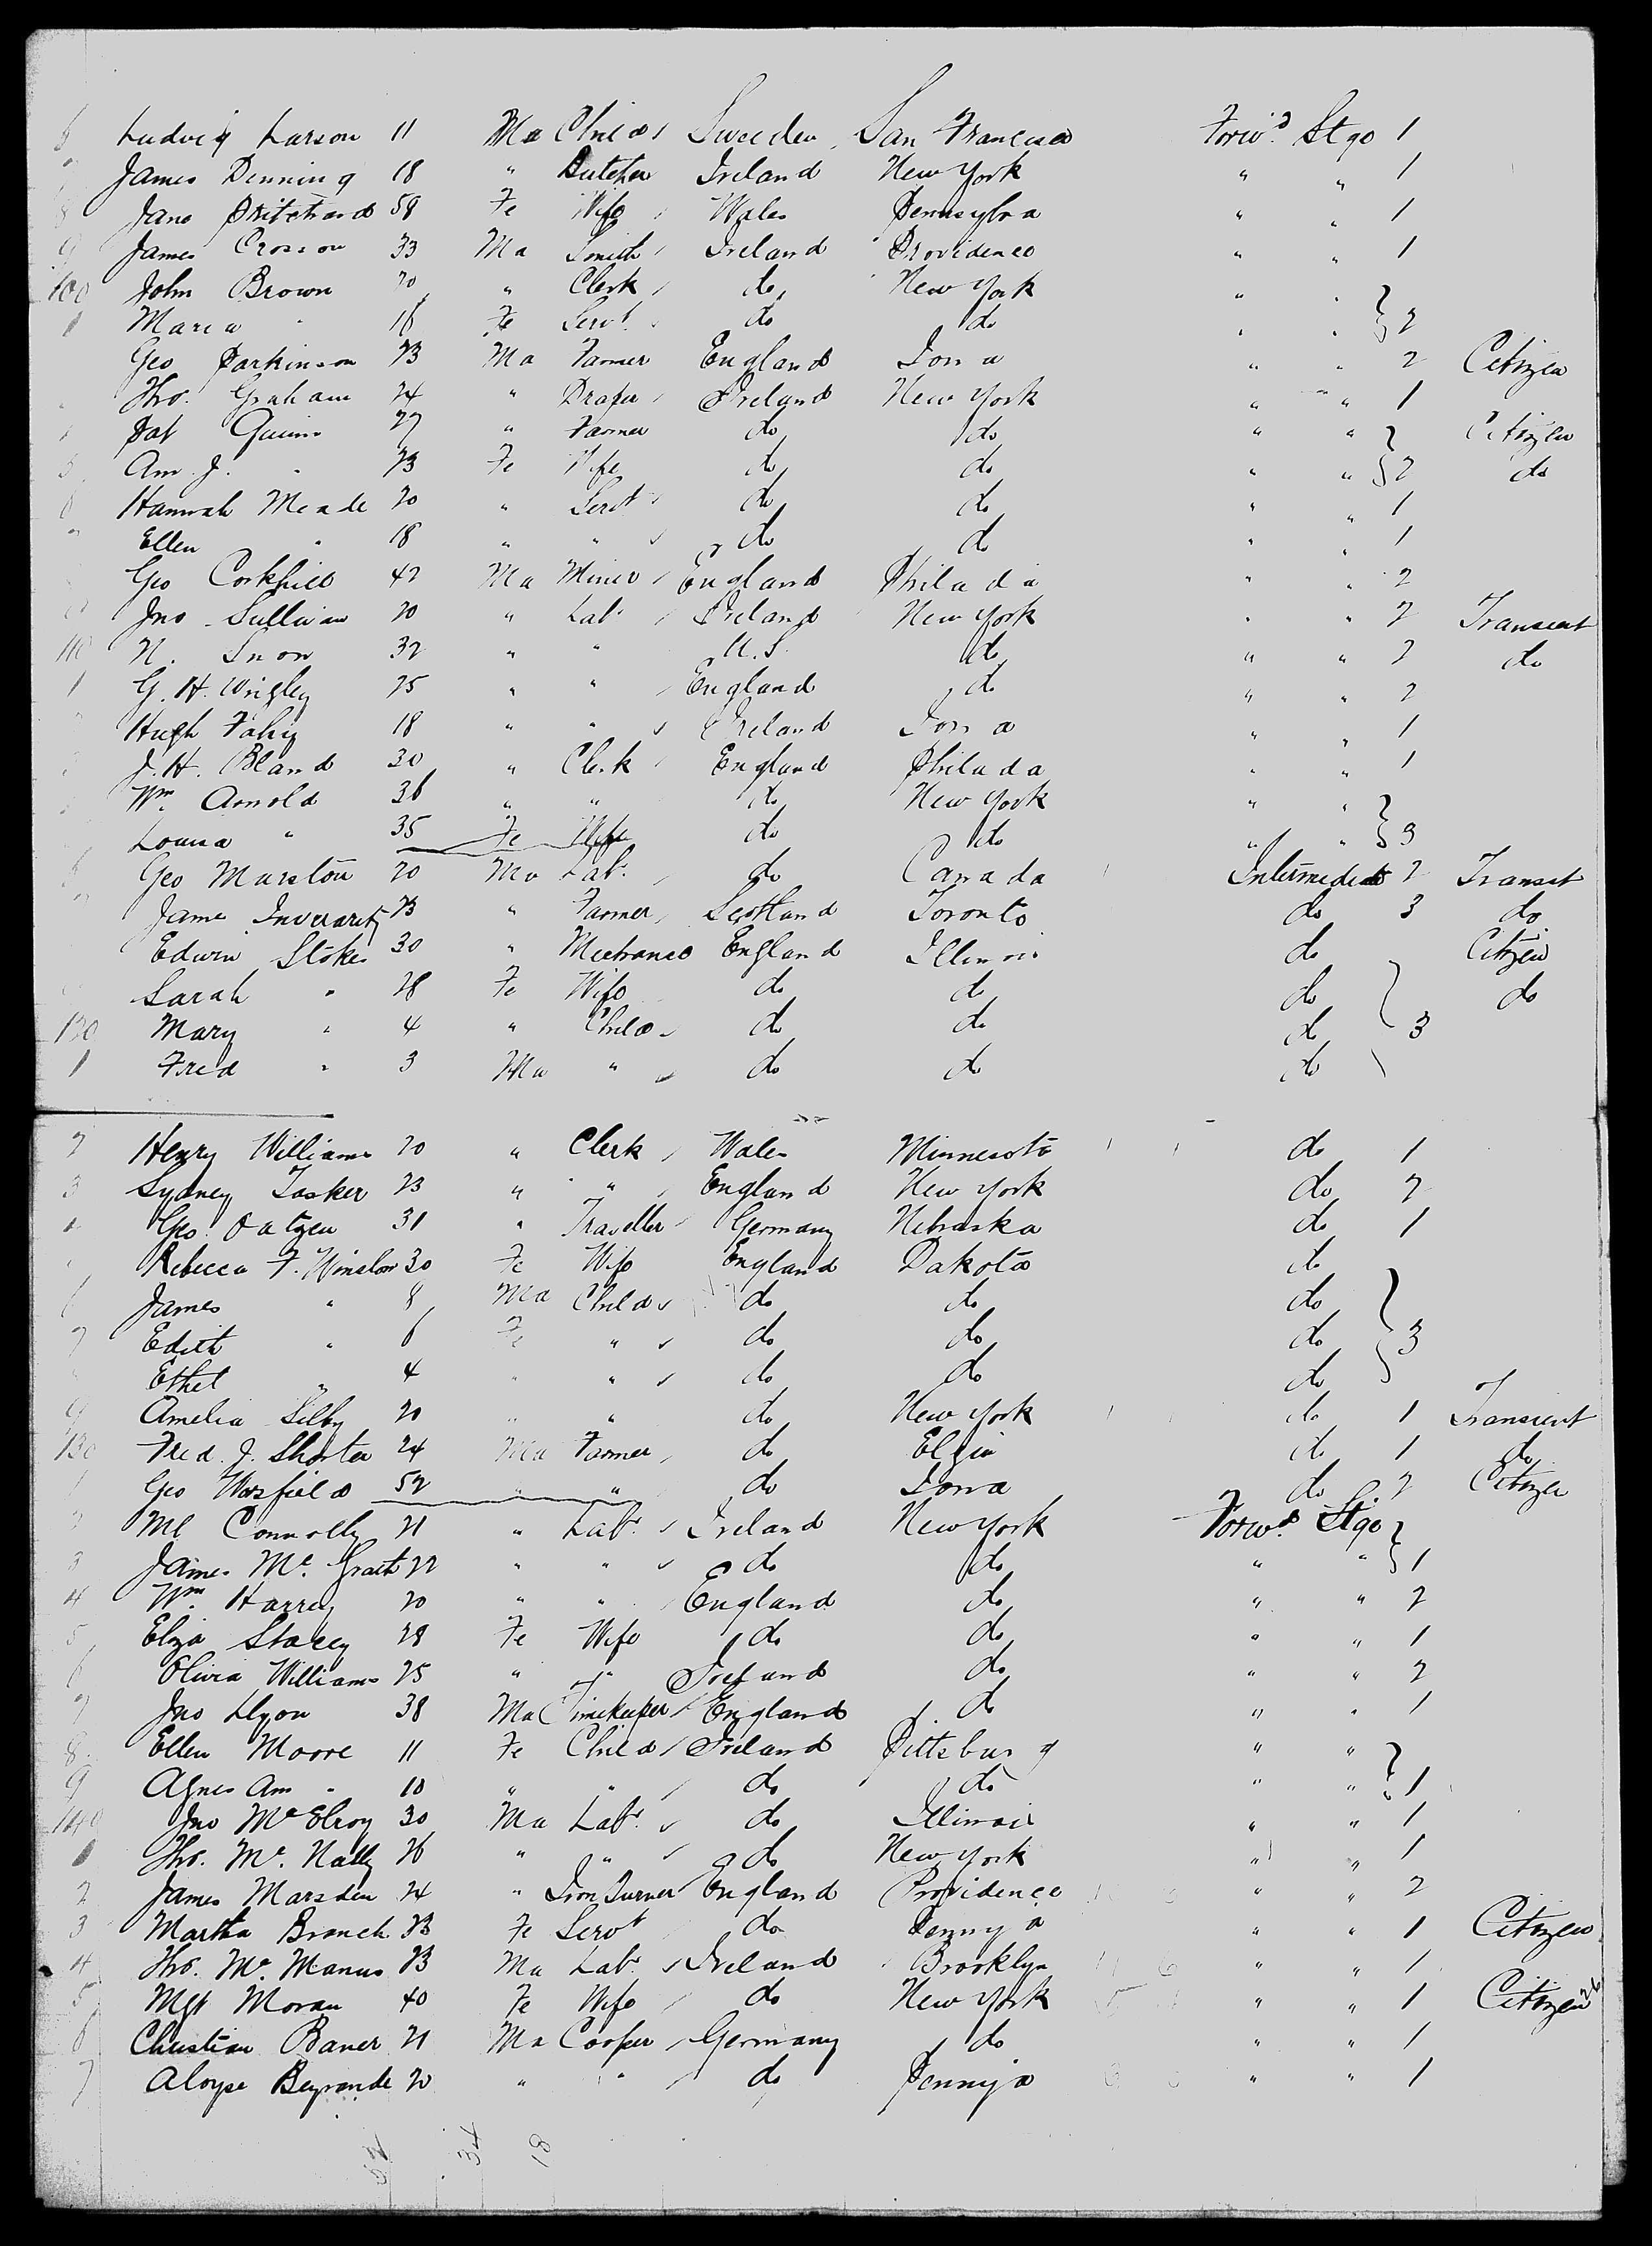 6 Ludvig Larson 11 Ma Child Sweeden San Francisco Forwd Stge 1
James Denning 18 " Butcher Ireland New York " " 1
8 Jane Pritchard 58 Fe Wife Wales Pennsylva " " 1
9 James Crosson 33 Ma Smith Ireland Providence " " 1
100 John Brown 20 " Clerk do New York " "
1 Maria " 16 Fe Servt do do " " } 2
Geo Parkinson 23 Ma Farmer England Iowa " " 2 Citizen
Tho. Graham 24 " Draper Ireland New York " " 1
Pat Quinn 27 " Farmer do do " " Citizen
5 Ann J. " 23 Fe Wife do do " " } 2 do
6 Hannah Meade 20 " Servt do do " " 1
Ellen " 18 " " do do " " 1
Geo Corkhill 42 Ma Miner England Philada " " 2
Jno Sullivan 20 " Labr Ireland New York " " 2 Transient
110 N. Snow 32 " " U.S. do " " 2 do
1 G. H. Wrigley 25 " " England do " " 2
Hugh Fahy 18 " " Ireland Iowa " " 1
J. H. Bland 30 " Clerk England Philada " " 1
Wm Arnold 36 " " do New York " "
Louisa " 35 Fe Wife do do " " } 3
6 Geo Marston 20 Ma Labr do Canada Intermediate 2 Transit
Jame Inverarity 23 " Farmer Scotland Toronto do 3 do
Edwin Stokes 30 " Mechanic England Illinois do Citizen
Sarah " 28 Fe Wife do do do do
120 Mary " 4 " Child do do do } 3
1 Fred " 3 Ma " do do do
2 Henry Williams 20 " Clerk Wales Minnesota do 1
3 Sydney Tasker 23 " " England New York do 2
Geo. 31 " Traveller Germany Nebraska do 1
Rebecca F. Winslow 30 Fe Wife England Dakota do
6 James " 8 Ma Child do do do
7 Edith " 6 Fe " do do do } 3
Ethel " 4 " " do do do
9 Amelia Silby 20 " " do New York do 1 Transient
130 Fred. J. Shorter 24 Ma Farmer do Elgin do 1 do
1 Geo Warfield 52 " " do Iowa do 2 Citizen
2 Ml Connolly 21 " Labr Ireland New York Forwd Stge
3 James Mc Grath 22 " " do do " " } 1
4 Wm Harrey 20 " " England do " " 2
5 Eliza Stacey 28 Fe Wife do do " " 1
6 Olivia Williams 25 " " Ireland do " " 2
7 Jno Lyon 38 Ma Timekeeper England do " " 1
8 Ellen Moore 11 Fe Child Ireland Pittsburg " "
9 Agnes Ann " 10 " " do do " " } 1
140 Jno McElroy 30 Ma Labr do Illinois " " 1
1 Tho. Mc Nally 26 " " do New York " " 1
2 James Marsden 24 " Iron Turner England Providence " " 2
3 Martha Branch 23 Fe Servt do Pennya " " 1 Citizen
4 Tho. Mc Manus 23 Ma Labr Ireland Brooklyn " " 1
5 Mgt Moran 40 Fe Wife do New York " " 1 Citizen
6 Christian Bauer 21 Ma Cooper Germany do " " 1
7 Aloyse 20 " " do Pennya " " 1
34 18